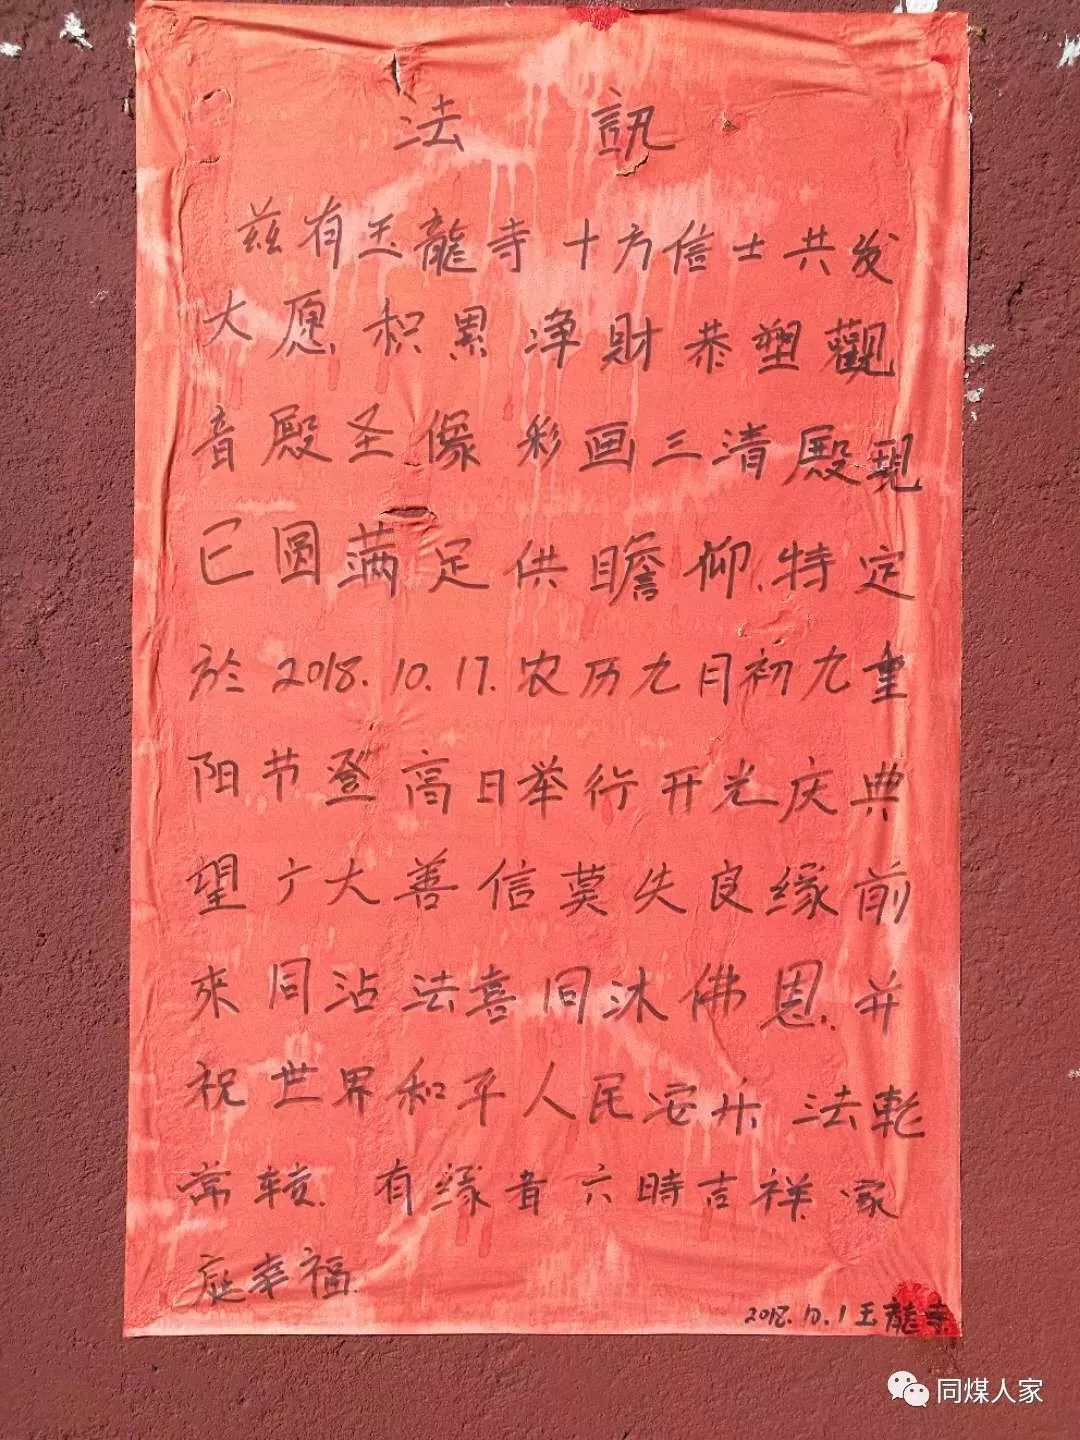 法訊
兹有玉龍寺十方信士共发
大愿积累净财恭塑觀
音殿圣像彩画三清殿現
已圆满足供瞻仰.特定
於2018.10.17.农历九月初九重
阳节登高日举行开光庆典
望广大善信莫失良缘前
來同沾法喜同沐佛恩.并
祝世界和平人民安乐法轮
常转.有缘者六時吉祥.家
庭幸福.
2018.10.1玉龍寺
同煤人家